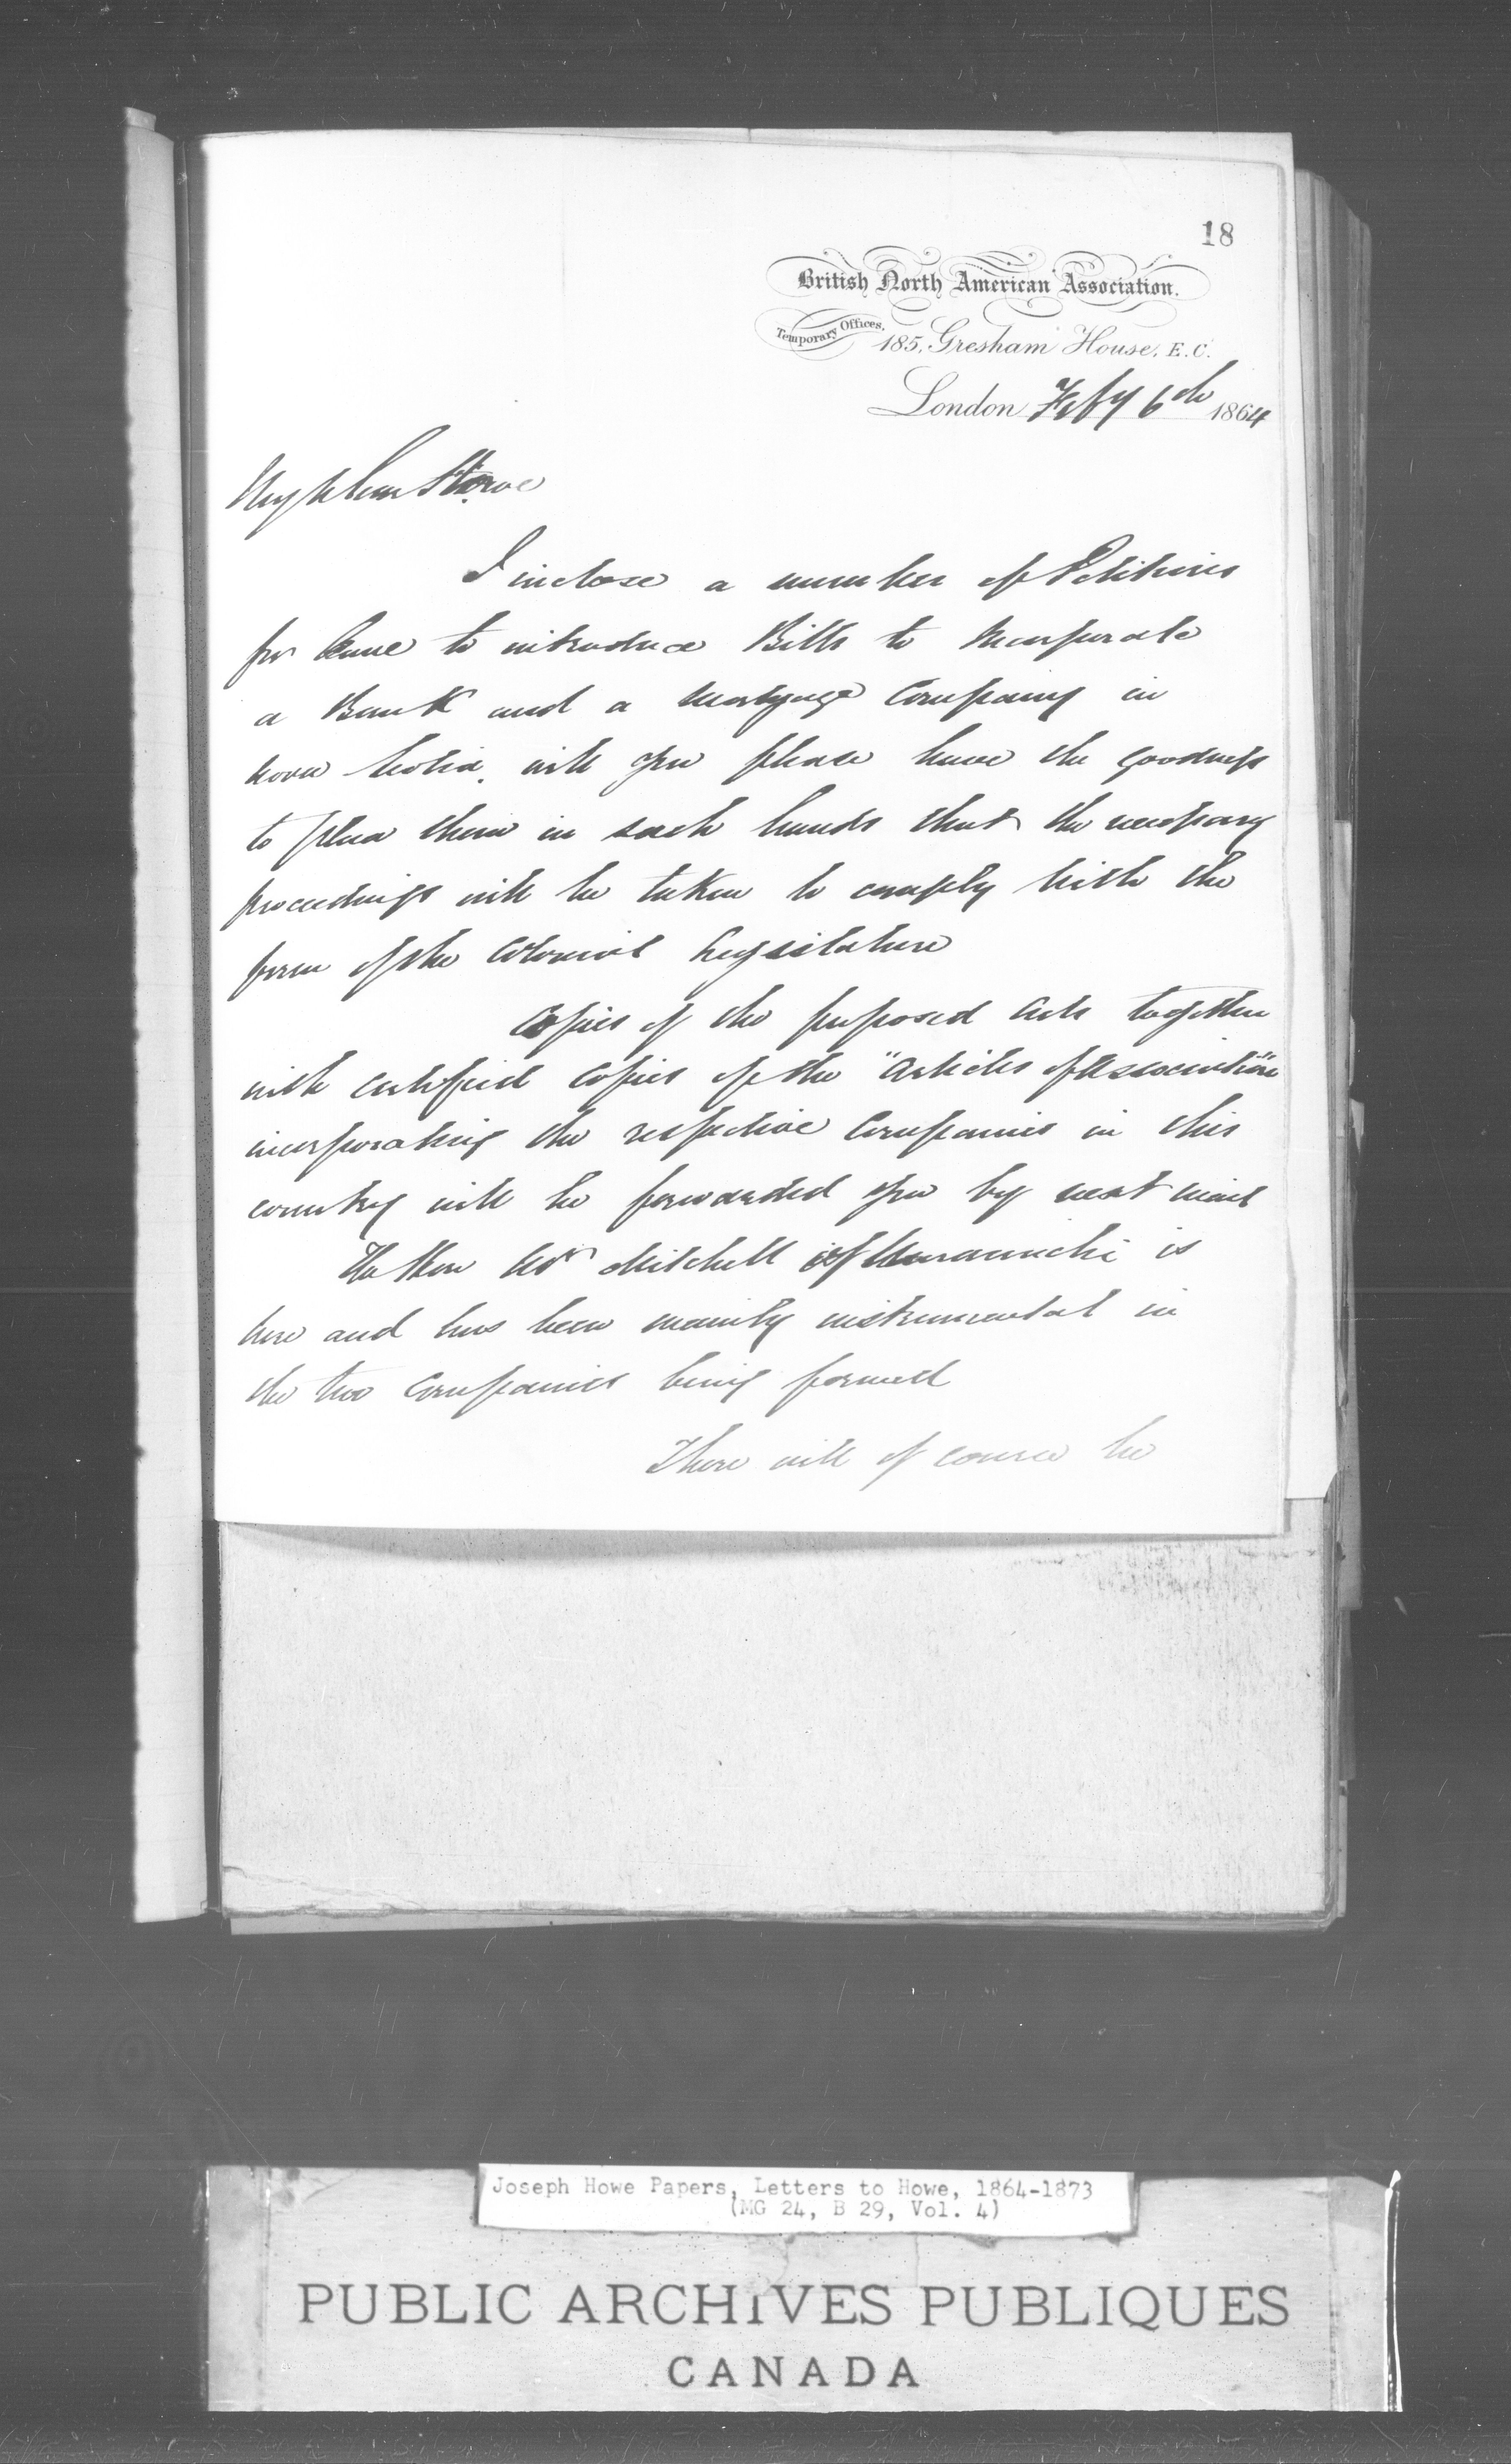 18
British North American Association.
Temporary Offices, 185, Gresham House, E.C.
London Feby 6th 1864
My dear Howe
I inclose a number of Petitions
for leave to introduce Bills to Incorporate
a Bank and a Mortgage Company in
Nova Scotia. will you please have the goodness
to place them in such hands that the necessary
proceedings will be taken to comply with the
form of the Colonial Legislature
Copies of the proposed Acts together
with certified copies of the "Articles of Association"
incorporating the respective Companies in this
country will be forwarded you by next mail
The Hon Mr Mitchell of Miramichi is
here and has been mainly instrumental in
the two Companies being formed
There will of course be
Joseph Howe Papers, Letters to Howe, 1864-1873
(MG 24, B 29, Vol. 4)
PUBLIC ARCHIVES PUBLIQUES
CANADA